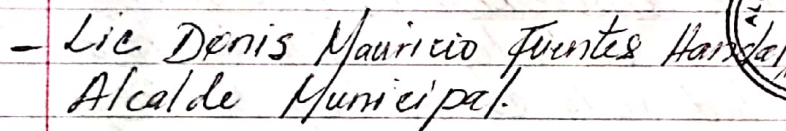 - Lic Denis Mauricio Fuentes Handal
Alcalde Municipal.